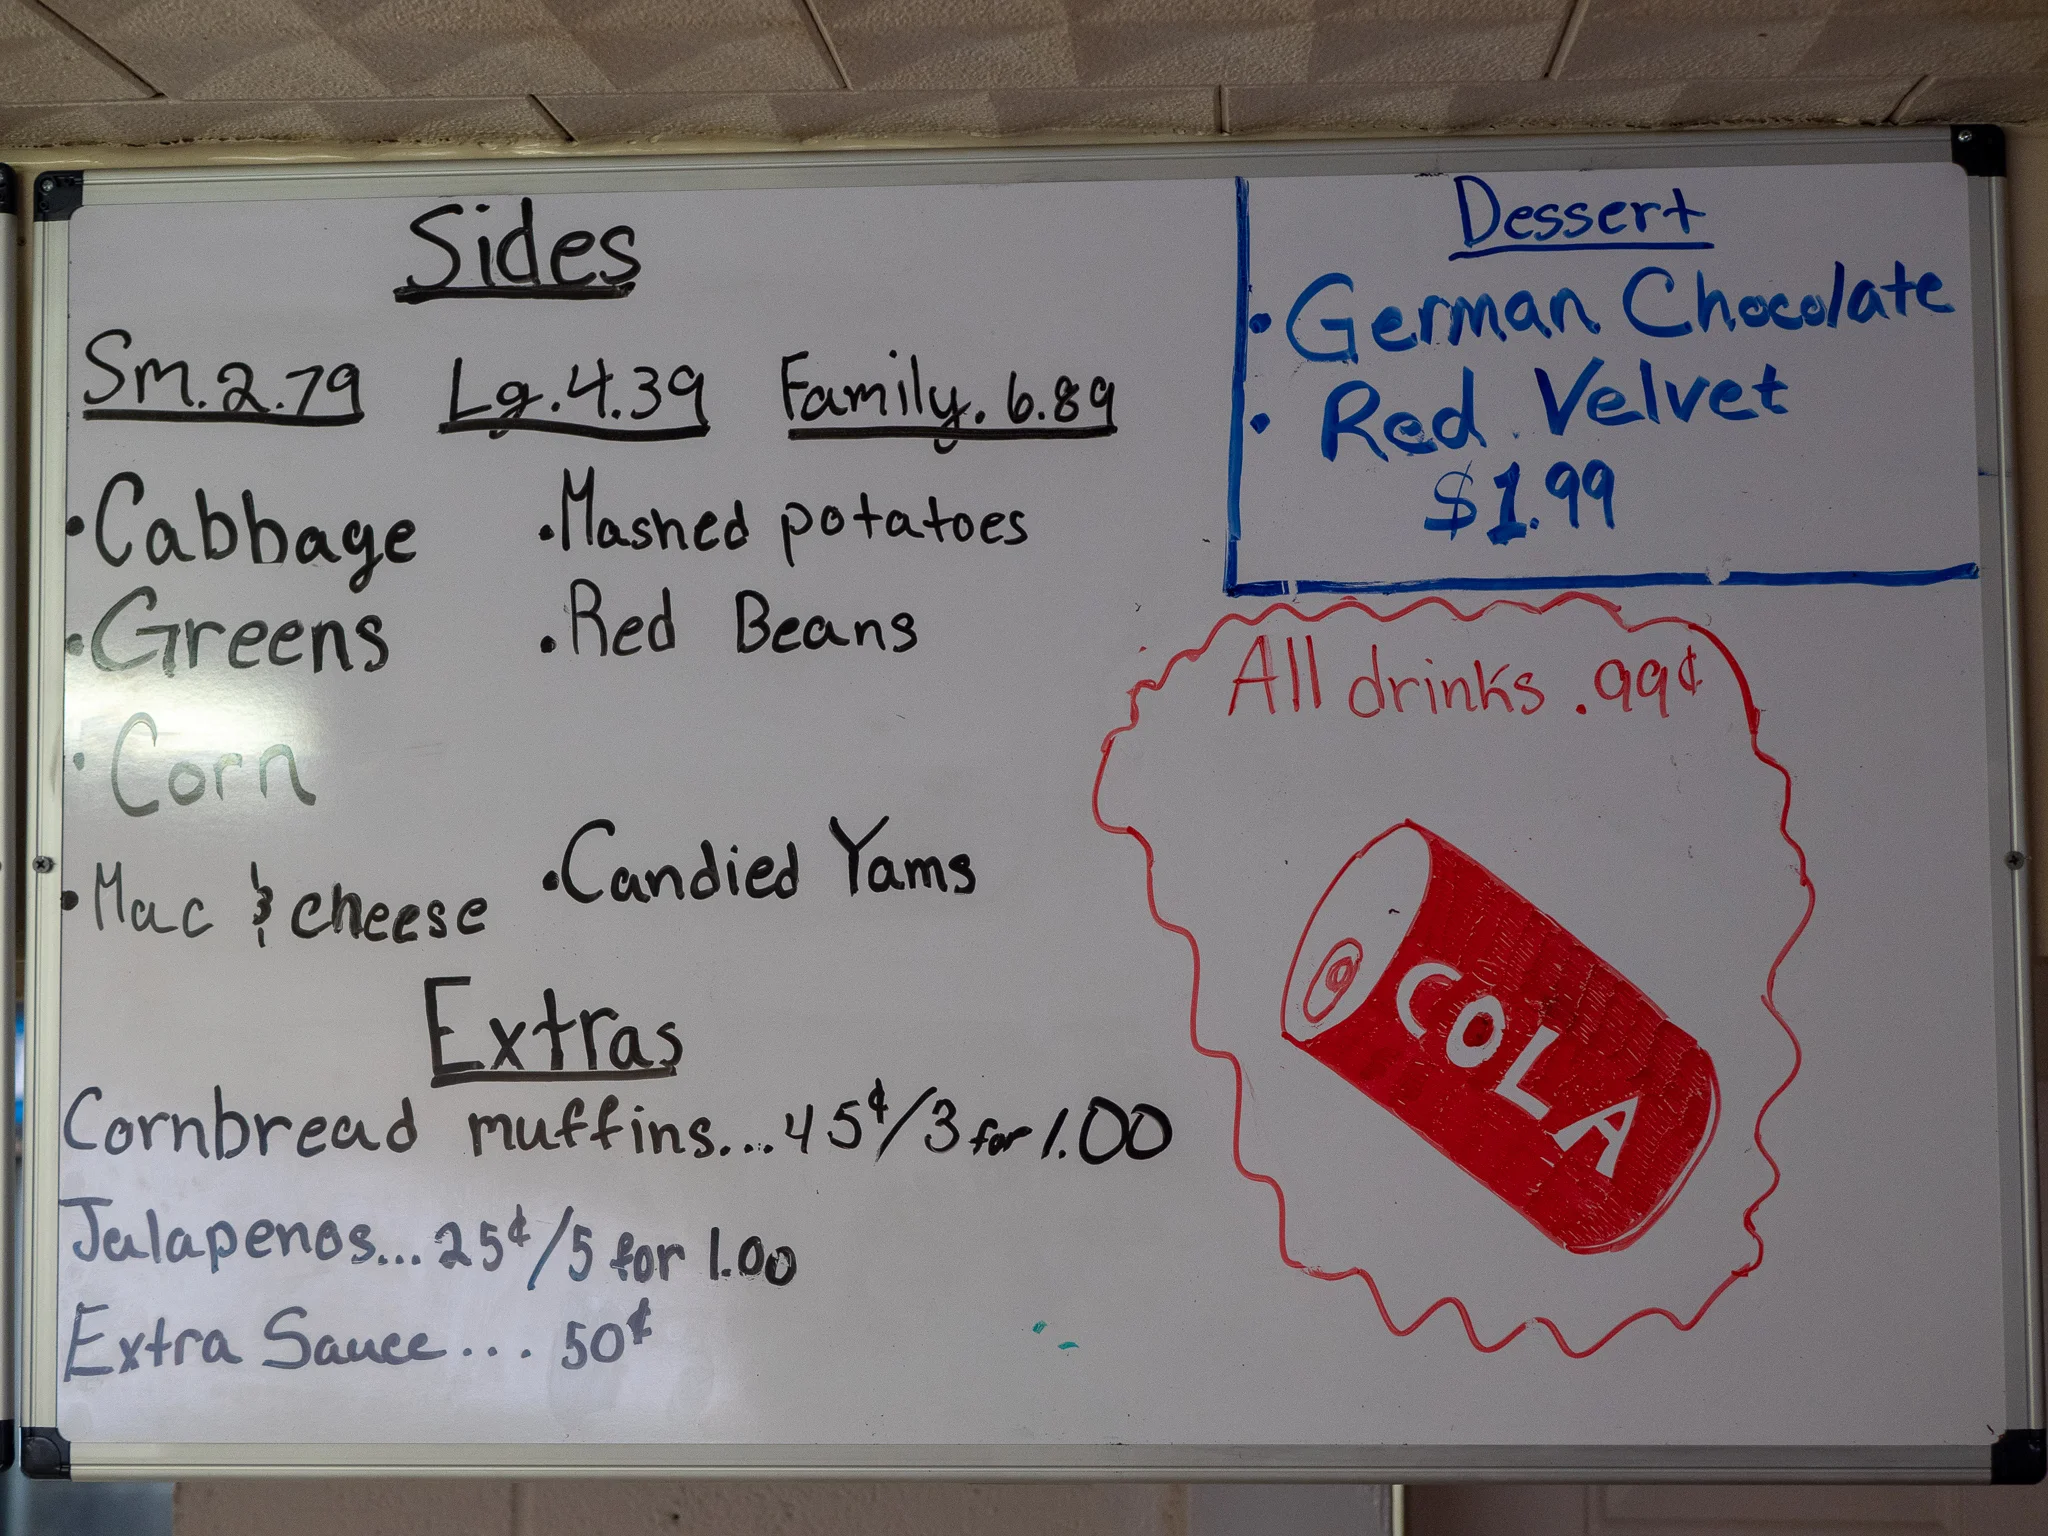 Sides
Sm. 2.79 Lg. 4.39 Family. 6.89
• Cabbage
• Greens
• Corn
• Mac & cheese
• Mashed potatoes
• Red Beans
• Candied Yams
Extras
Cornbread muffins... 45¢/3 for 1.00
Jalapenos... 25¢/5 for 1.00
Extra Sauce... 50¢
Dessert
• German Chocolate
• Red Velvet
$1.99
All drinks .99¢
COLA